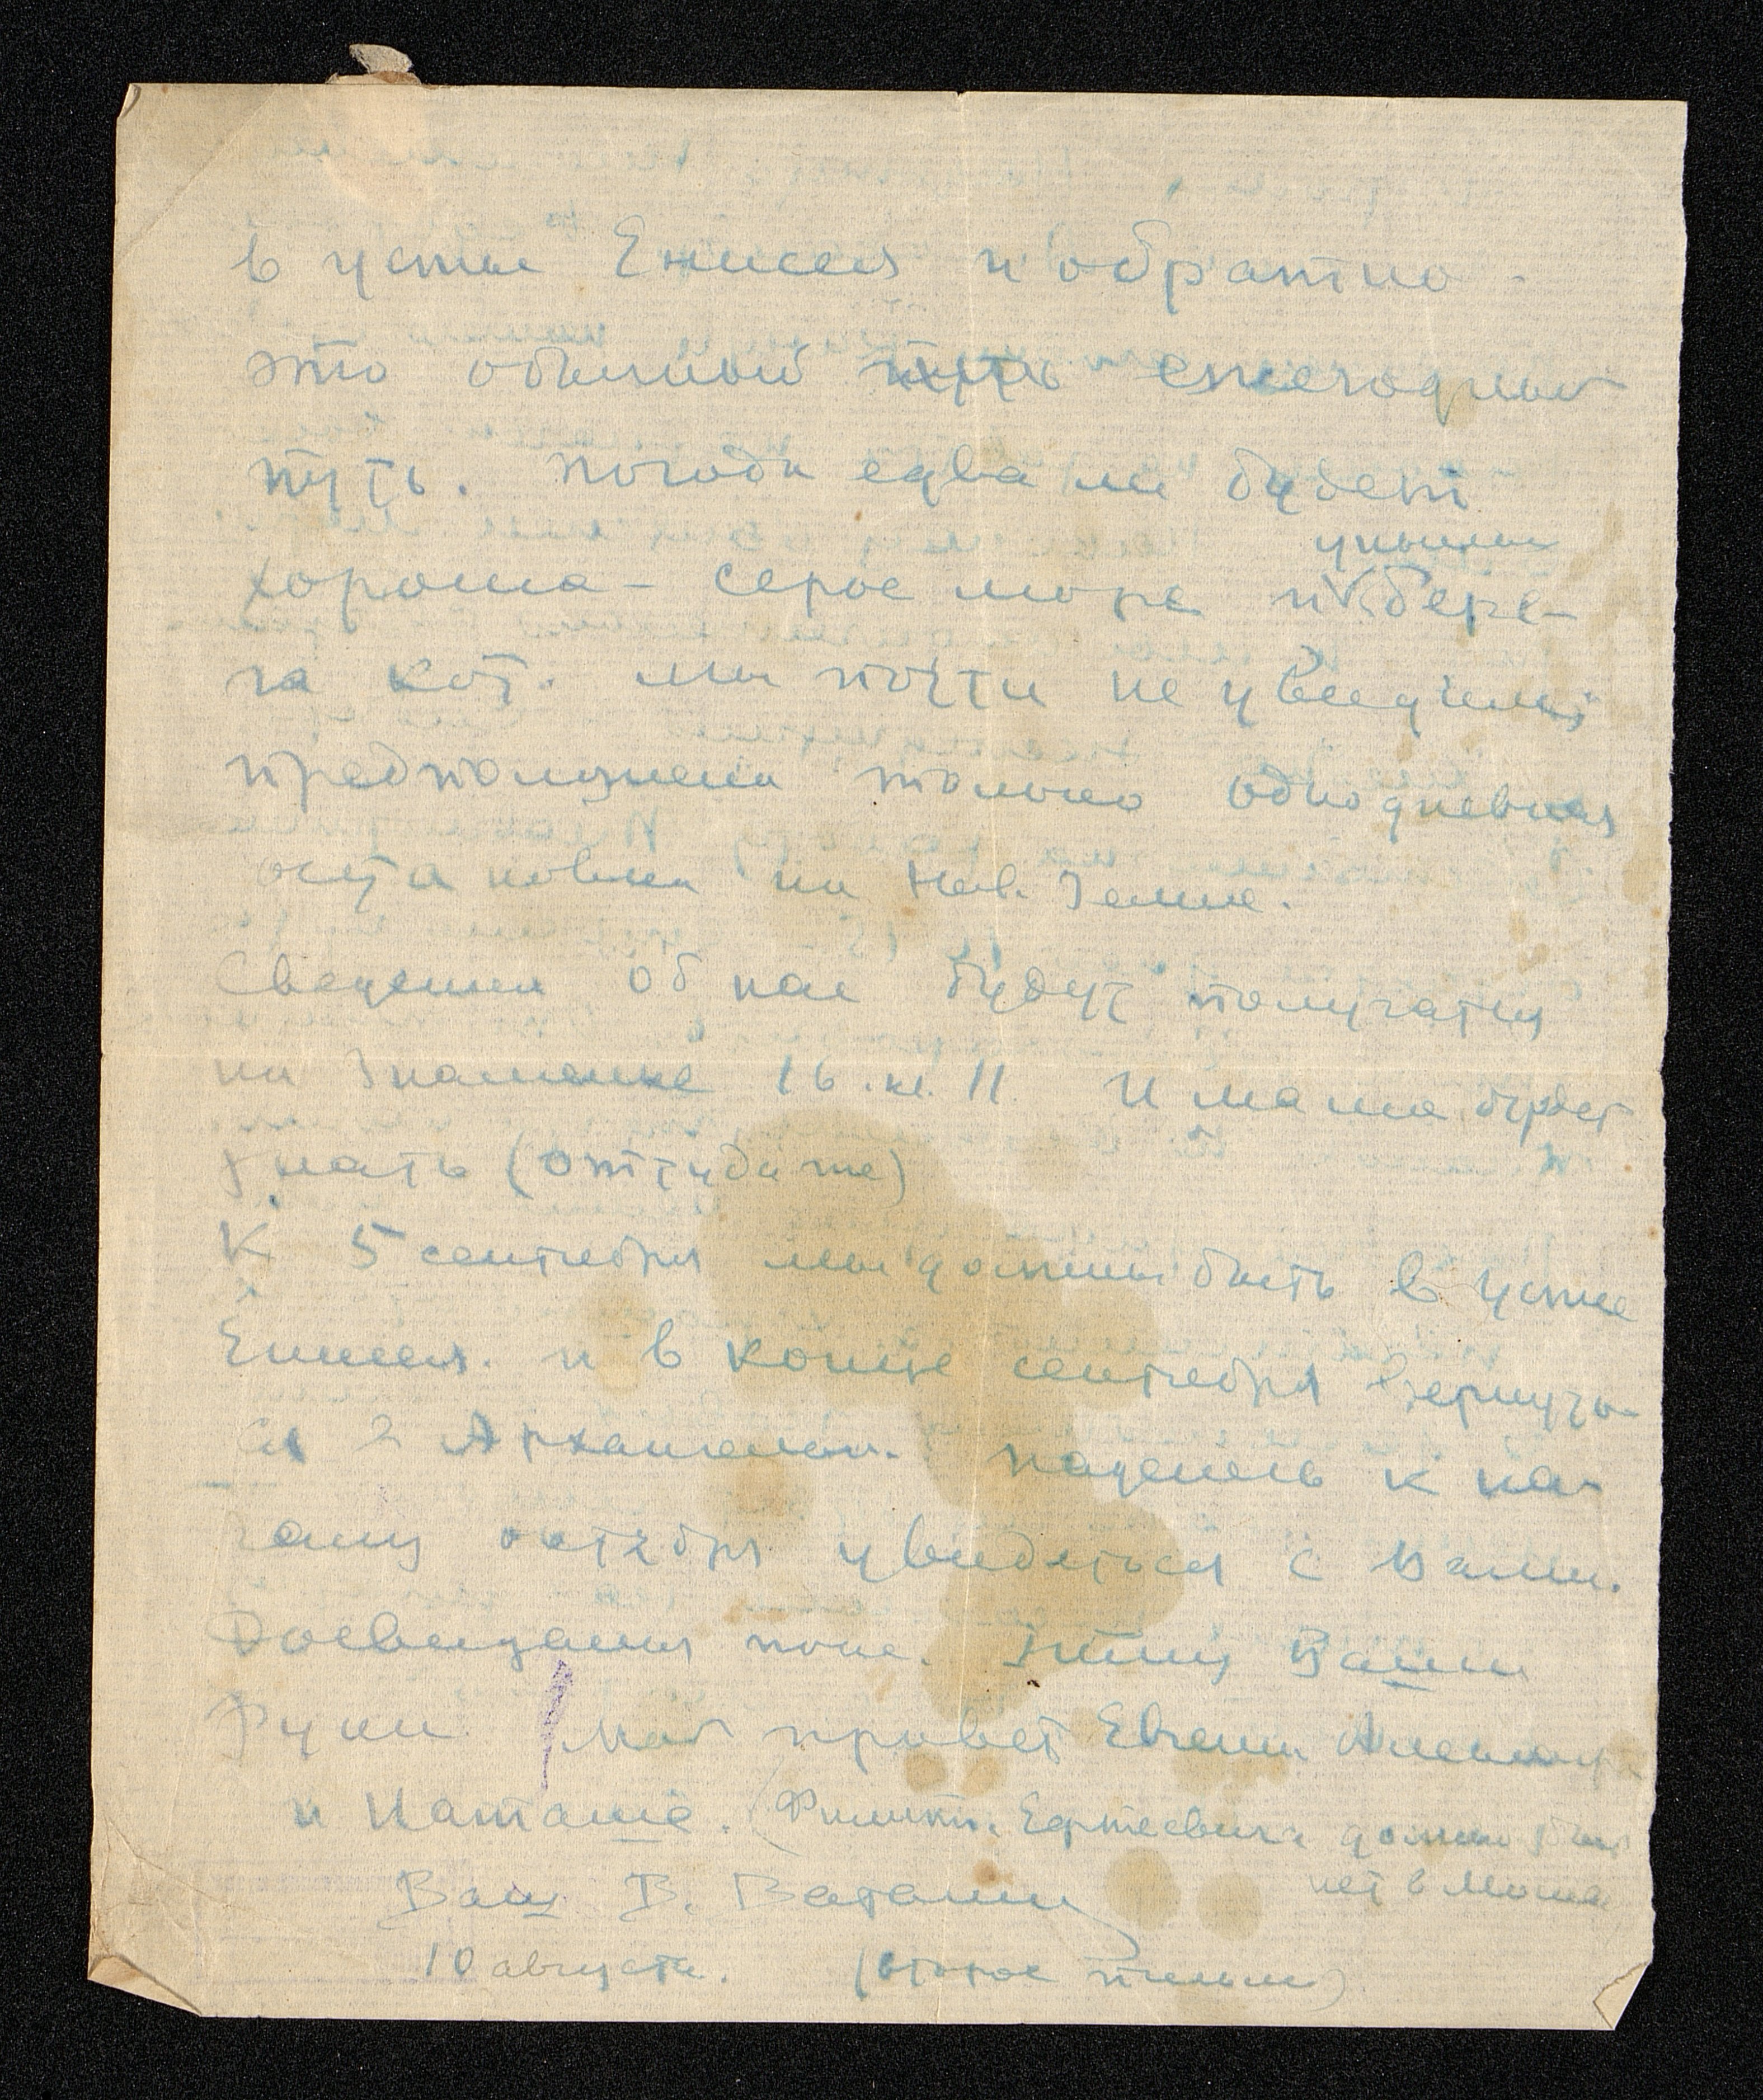 в устье Енисея и обратно -
это обычный путь ежегодный
путь. погода едва ли будет
унылые
хороша - серое море и бере-
га кот. мы почти не увидим;
предположена только однодневная
остановка на Нов. Земле.
Сведения об нас будут получаться
на Знаменке 16. кв. 11. И мама будет
знать (оттуда же)
К 5 сентября мы должны быть в устье
Енисея. и в конце сентября вернуть-
ся в Архангельск. надеюсь к на-
чалу октября увидеться с Вами.
Досвидания пока. Жму Ваши
руки. Мой привет Евгении
и Наташе. ( должно быть
нет в Москве
Ваш В. Ватагин
10 августа. (второе письмо)